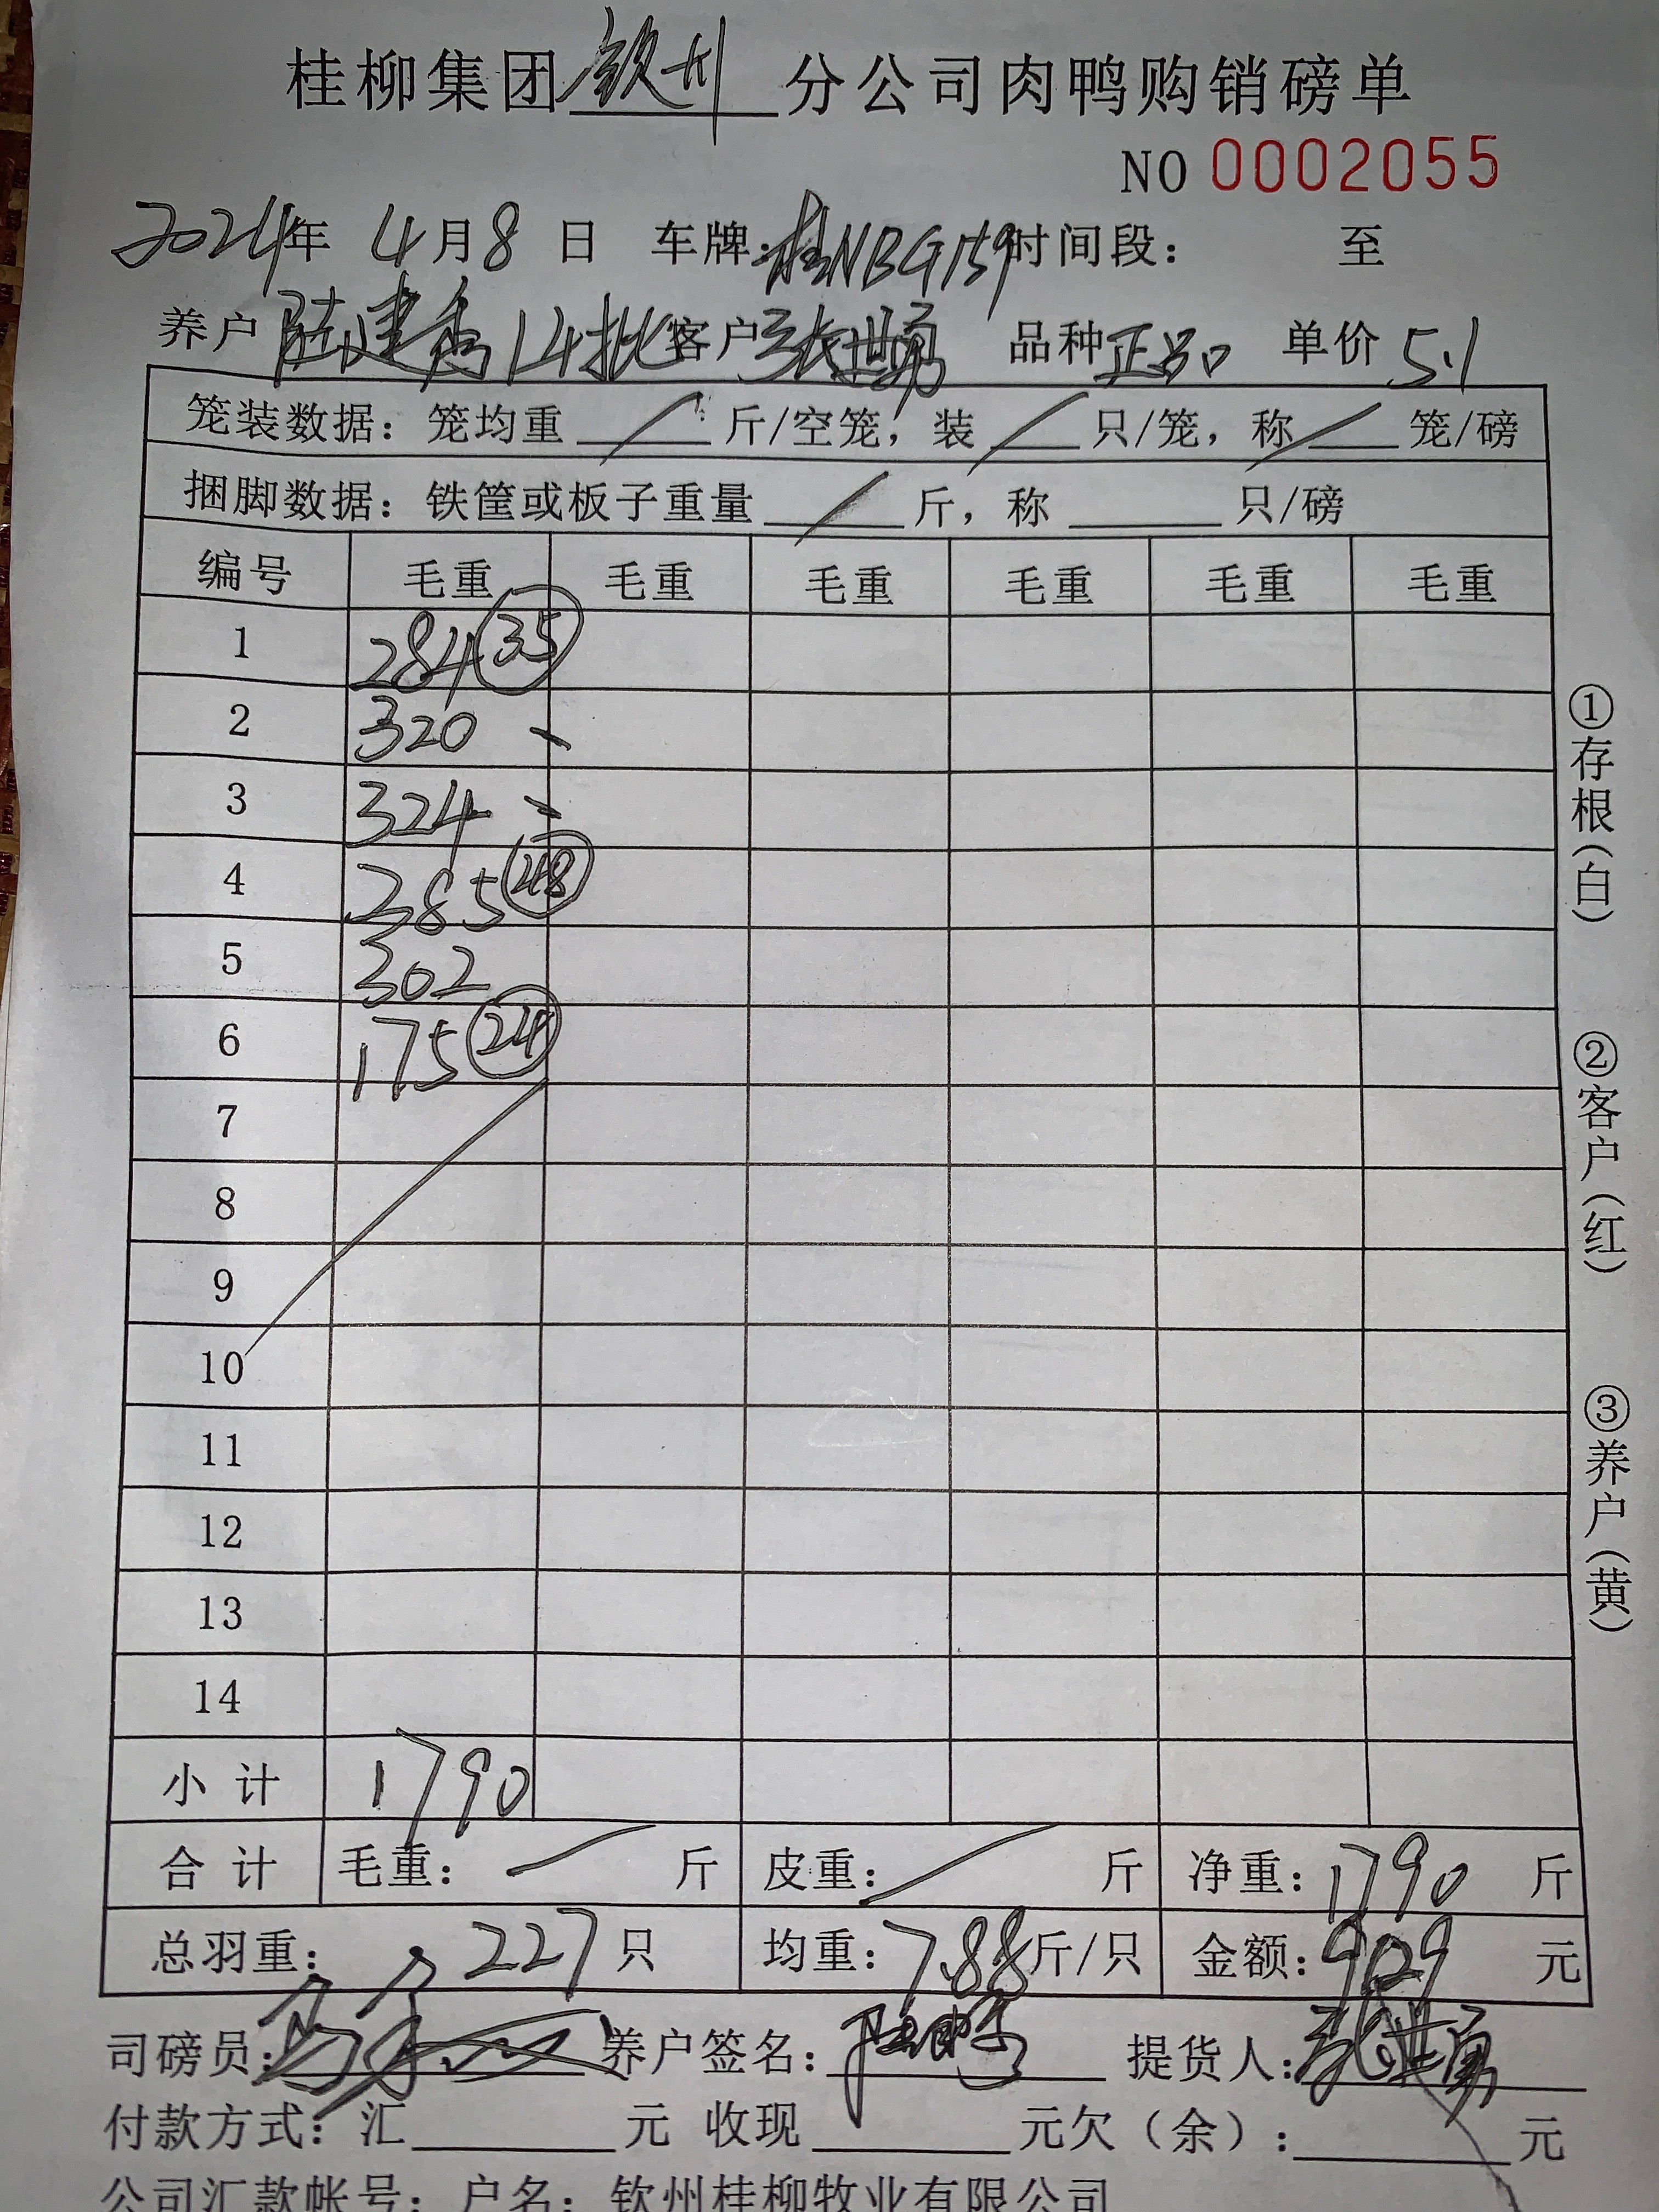 桂柳集团钦州分公司肉鸭购销磅单
NO 0002055
2024年 4月8日 车牌:桂NBG159时间段: 至
养户陆建秀14批客户张世勇 品种正品 单价5.1
笼装数据:笼均重 / 斤/空笼,装 / 只/笼,称 / 笼/磅
捆脚数据:铁筐或板子重量 / 斤,称 只/磅
编号 毛重 毛重 毛重 毛重 毛重 毛重
1 284 35
2 320 、
3 324 、
4 285 48
5 302
6 175 24
7
8
9
10
11
12
13
14
小计 1790
合计 毛重: / 斤 皮重: / 斤 净重:1790 斤
总羽重: 227只 均重:7.88斤/只 金额:9129 元
司磅员: 养户签名: 提货人:张世勇
付款方式:汇 元 收现 元欠(余): 元
公司汇款帐号:户名:钦州桂柳牧业有限公司
①存根(白)
②客户(红)
③养户(黄)